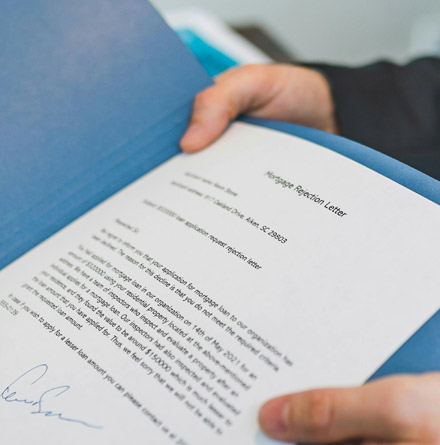 Mortgage Rejection Letter
Applicant address: 917 Oakland Drive, Aiken, SC 29803
Subject: $120000 loan application request rejection letter
Respected Sir,
We regret to inform you that your application for mortgage loan to our organization has
been declined. The reason for this decline is that you do not meet the required criteria.
You had applied for mortgage loan in our organization on 14th of May 2021 for an
amount of using your residential property located at the above mentioned
address. We have a team of inspectors who inspect and evaluate a property after an
individual applies for a mortgage loan. Our inspectors had also inspected and evaluated
your residence, and they found the value to be around $150000 which is much lesser to
the loan amount that you have applied for. Thus, we feel sorry that we will not be able to
grant the requested loan amount.
In case if you wish to apply for a lesser loan amount you can please contact us at